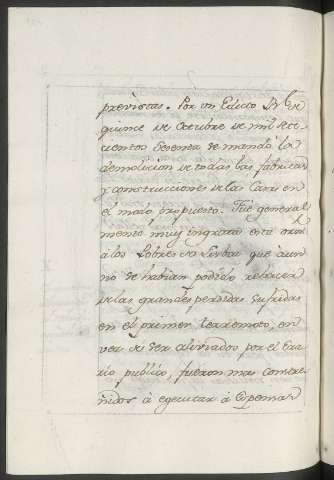 previstas. Por un Edicto Rl. de
quince de Octubre de mil sete-
cientos sesenta se mandó la
demolicion de todas las fabricas
y construcciones de las Casas en
el modo propuesto. Fué general
mente muy ingrata esta orn
á los Pobres que aun
no se habian podido rehacer
de las grandes perdidas sufridas
en el primer terremoto, en
vez de ser aliviados por el Era-
rio publico, fueron mas constre-
ñidos á egecutar á expensas